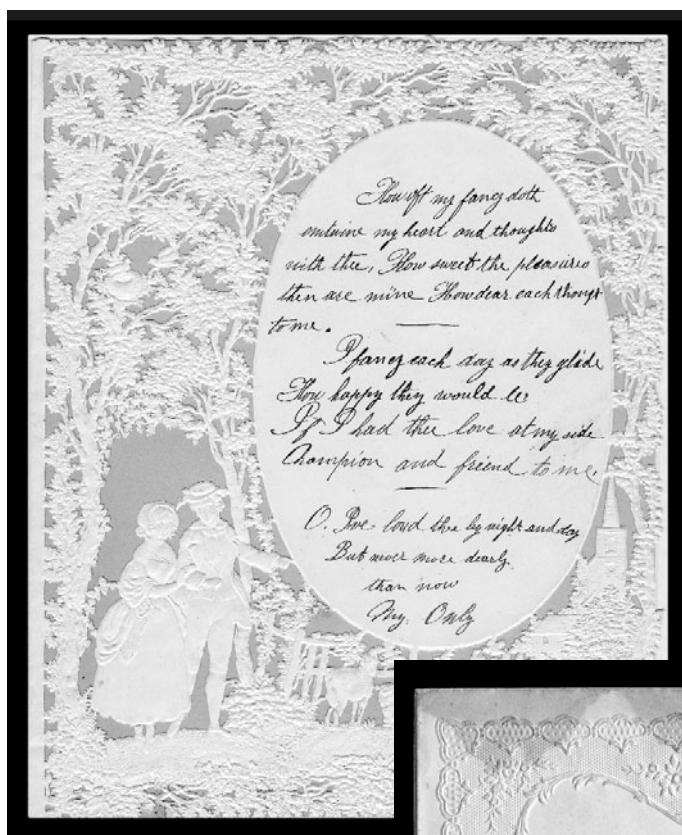 How oft my fancy doth
entwine my heart and thoughts
with thee, How sweet the pleasures
then are mine How dear each thought
to me.
I fancy each day as they glide
How happy they would be
If I had thee love at my side
Champion and friend to me.
O. I've lovd thee by night and day
But never more dearly
than now
My Only